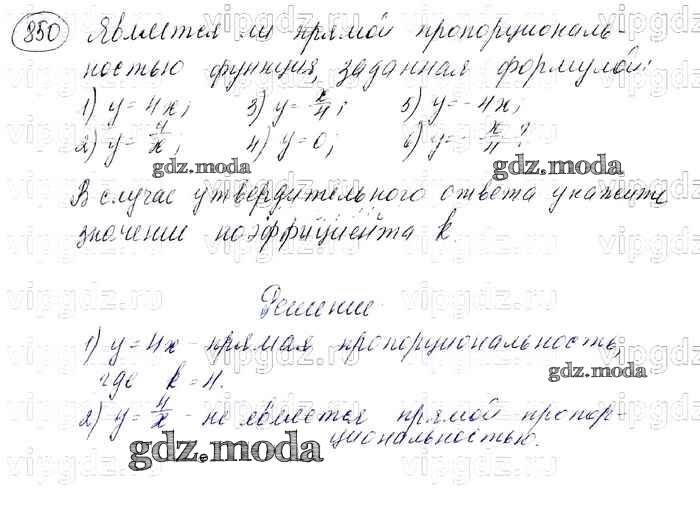 850 Является ли прямой пропорциональ-
ностью функция, заданная формулой:
1) y = 4x; 3) y = x/4; 5) y = -4x;
2) y = 4/x; 4) y = 0; 6) y = -x/4?
gdz.moda gdz.moda
В случае утвердительного ответа укажите
значение коэффициента k.
Решение
1) y = 4x - прямая пропорциональность,
где k = 4.
gdz.moda
2) y = 4/x - не является прямой пропор-
циональностью.
gdz.moda
vipgdz.ru